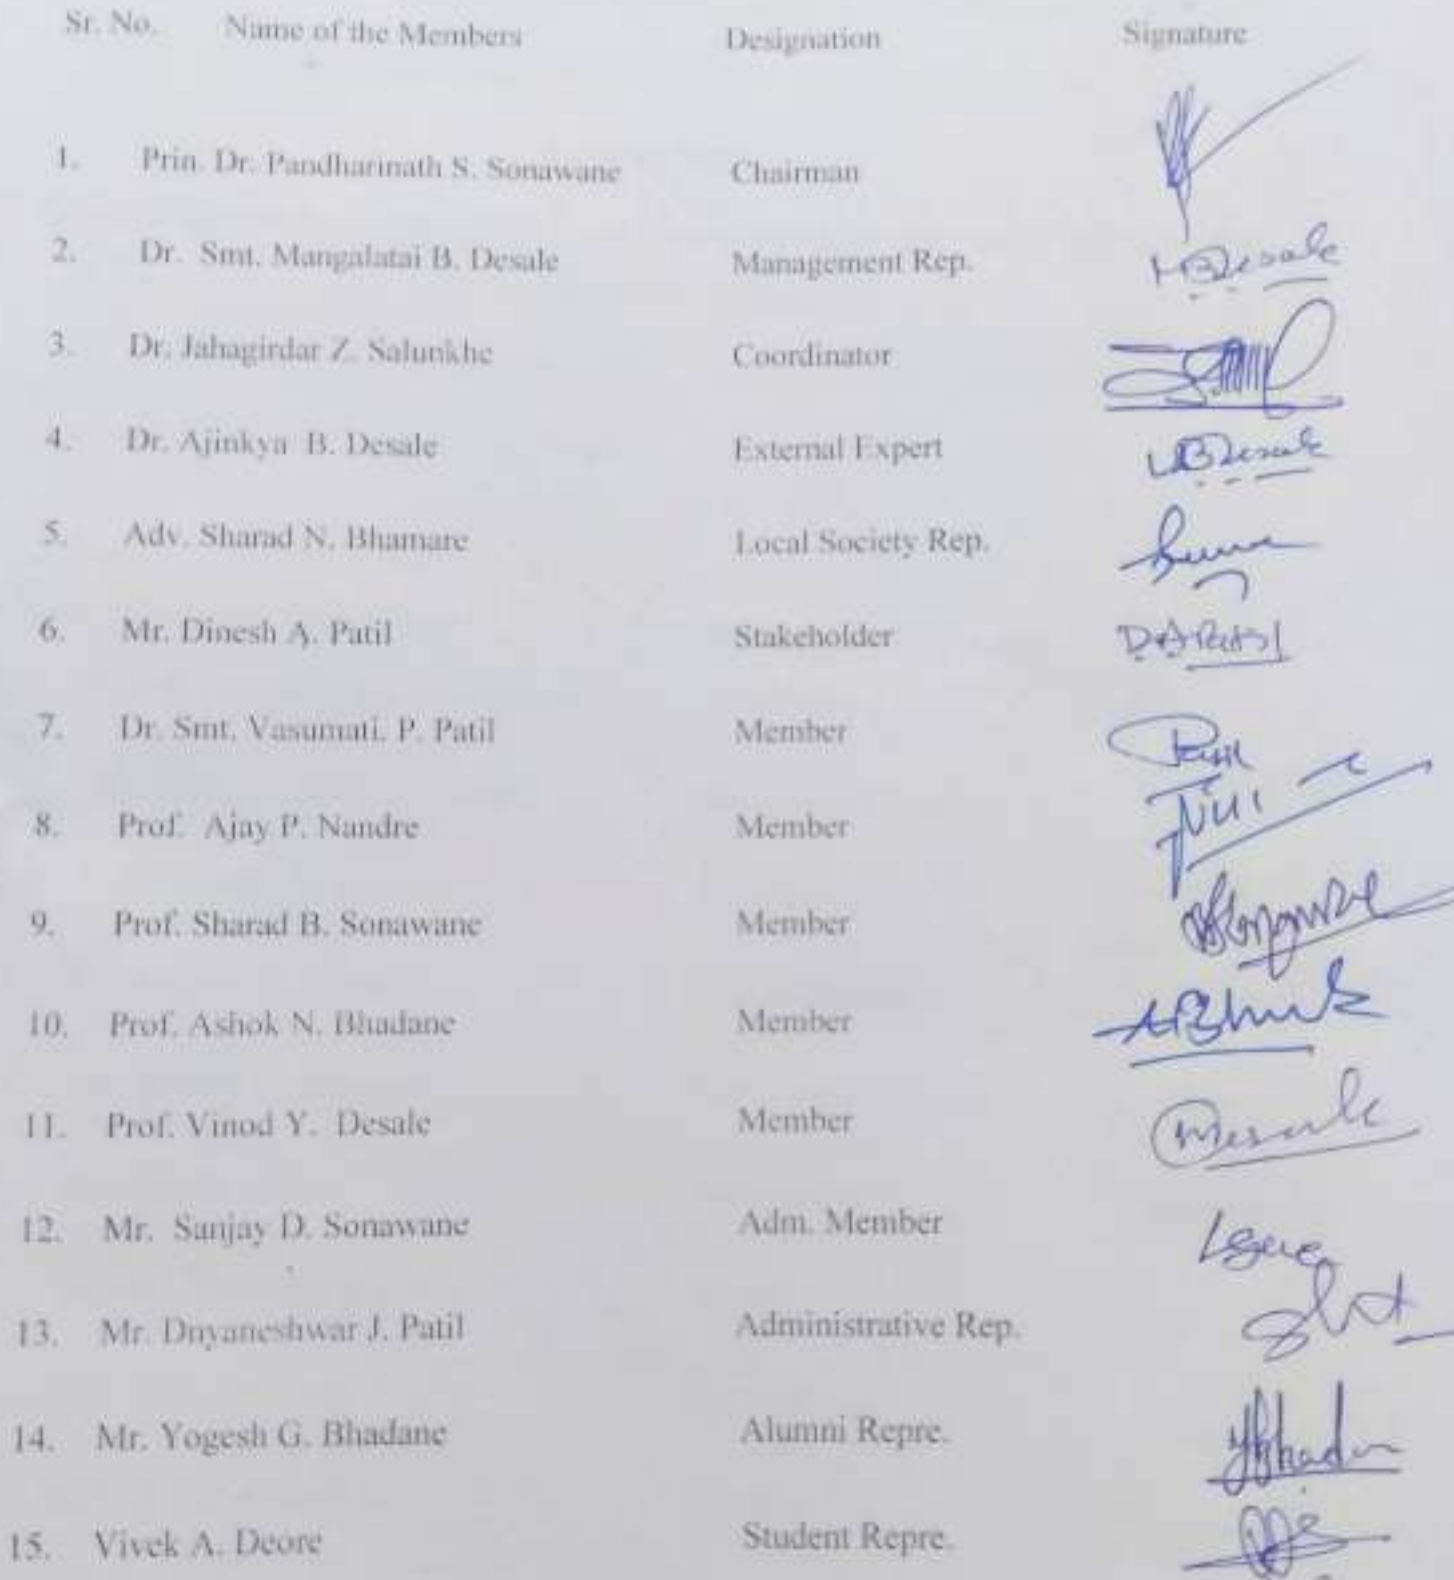 Sr. No. Name of the Members Designation Signature
1. Prin. Dr. Pandharinath S. Sonawane Chairman
2. Dr. Smt. Mangalatai B. Desale Management Rep. MBDesale
3. Dr. Jahagirdar Z. Salunkhe Coordinator
4. Dr. Ajinkya B. Desale External Expert
5. Adv. Sharad N. Bhamare Local Society Rep.
6. Mr. Dinesh A. Patil Stakeholder D.A.Patil
7. Dr. Smt. Vasumati. P. Patil Member
8. Prof. Ajay P. Nandre Member
9. Prof. Sharad B. Sonawane Member
10. Prof. Ashok N. Bhadane Member
11. Prof. Vinod Y. Desale Member
12. Mr. Sanjay D. Sonawane Adm. Member
13. Mr. Dnyaneshwar J. Patil Administrative Rep.
14. Mr. Yogesh G. Bhadane Alumni Repre.
15. Vivek A. Deore Student Repre.